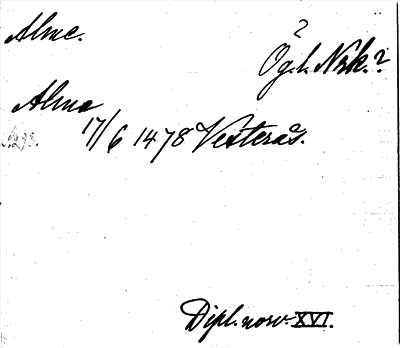 Alme.
?
Ög.l. Nrk.?
Alme
17/6 1478 Vesterås.
Dipl. norv. XVI.